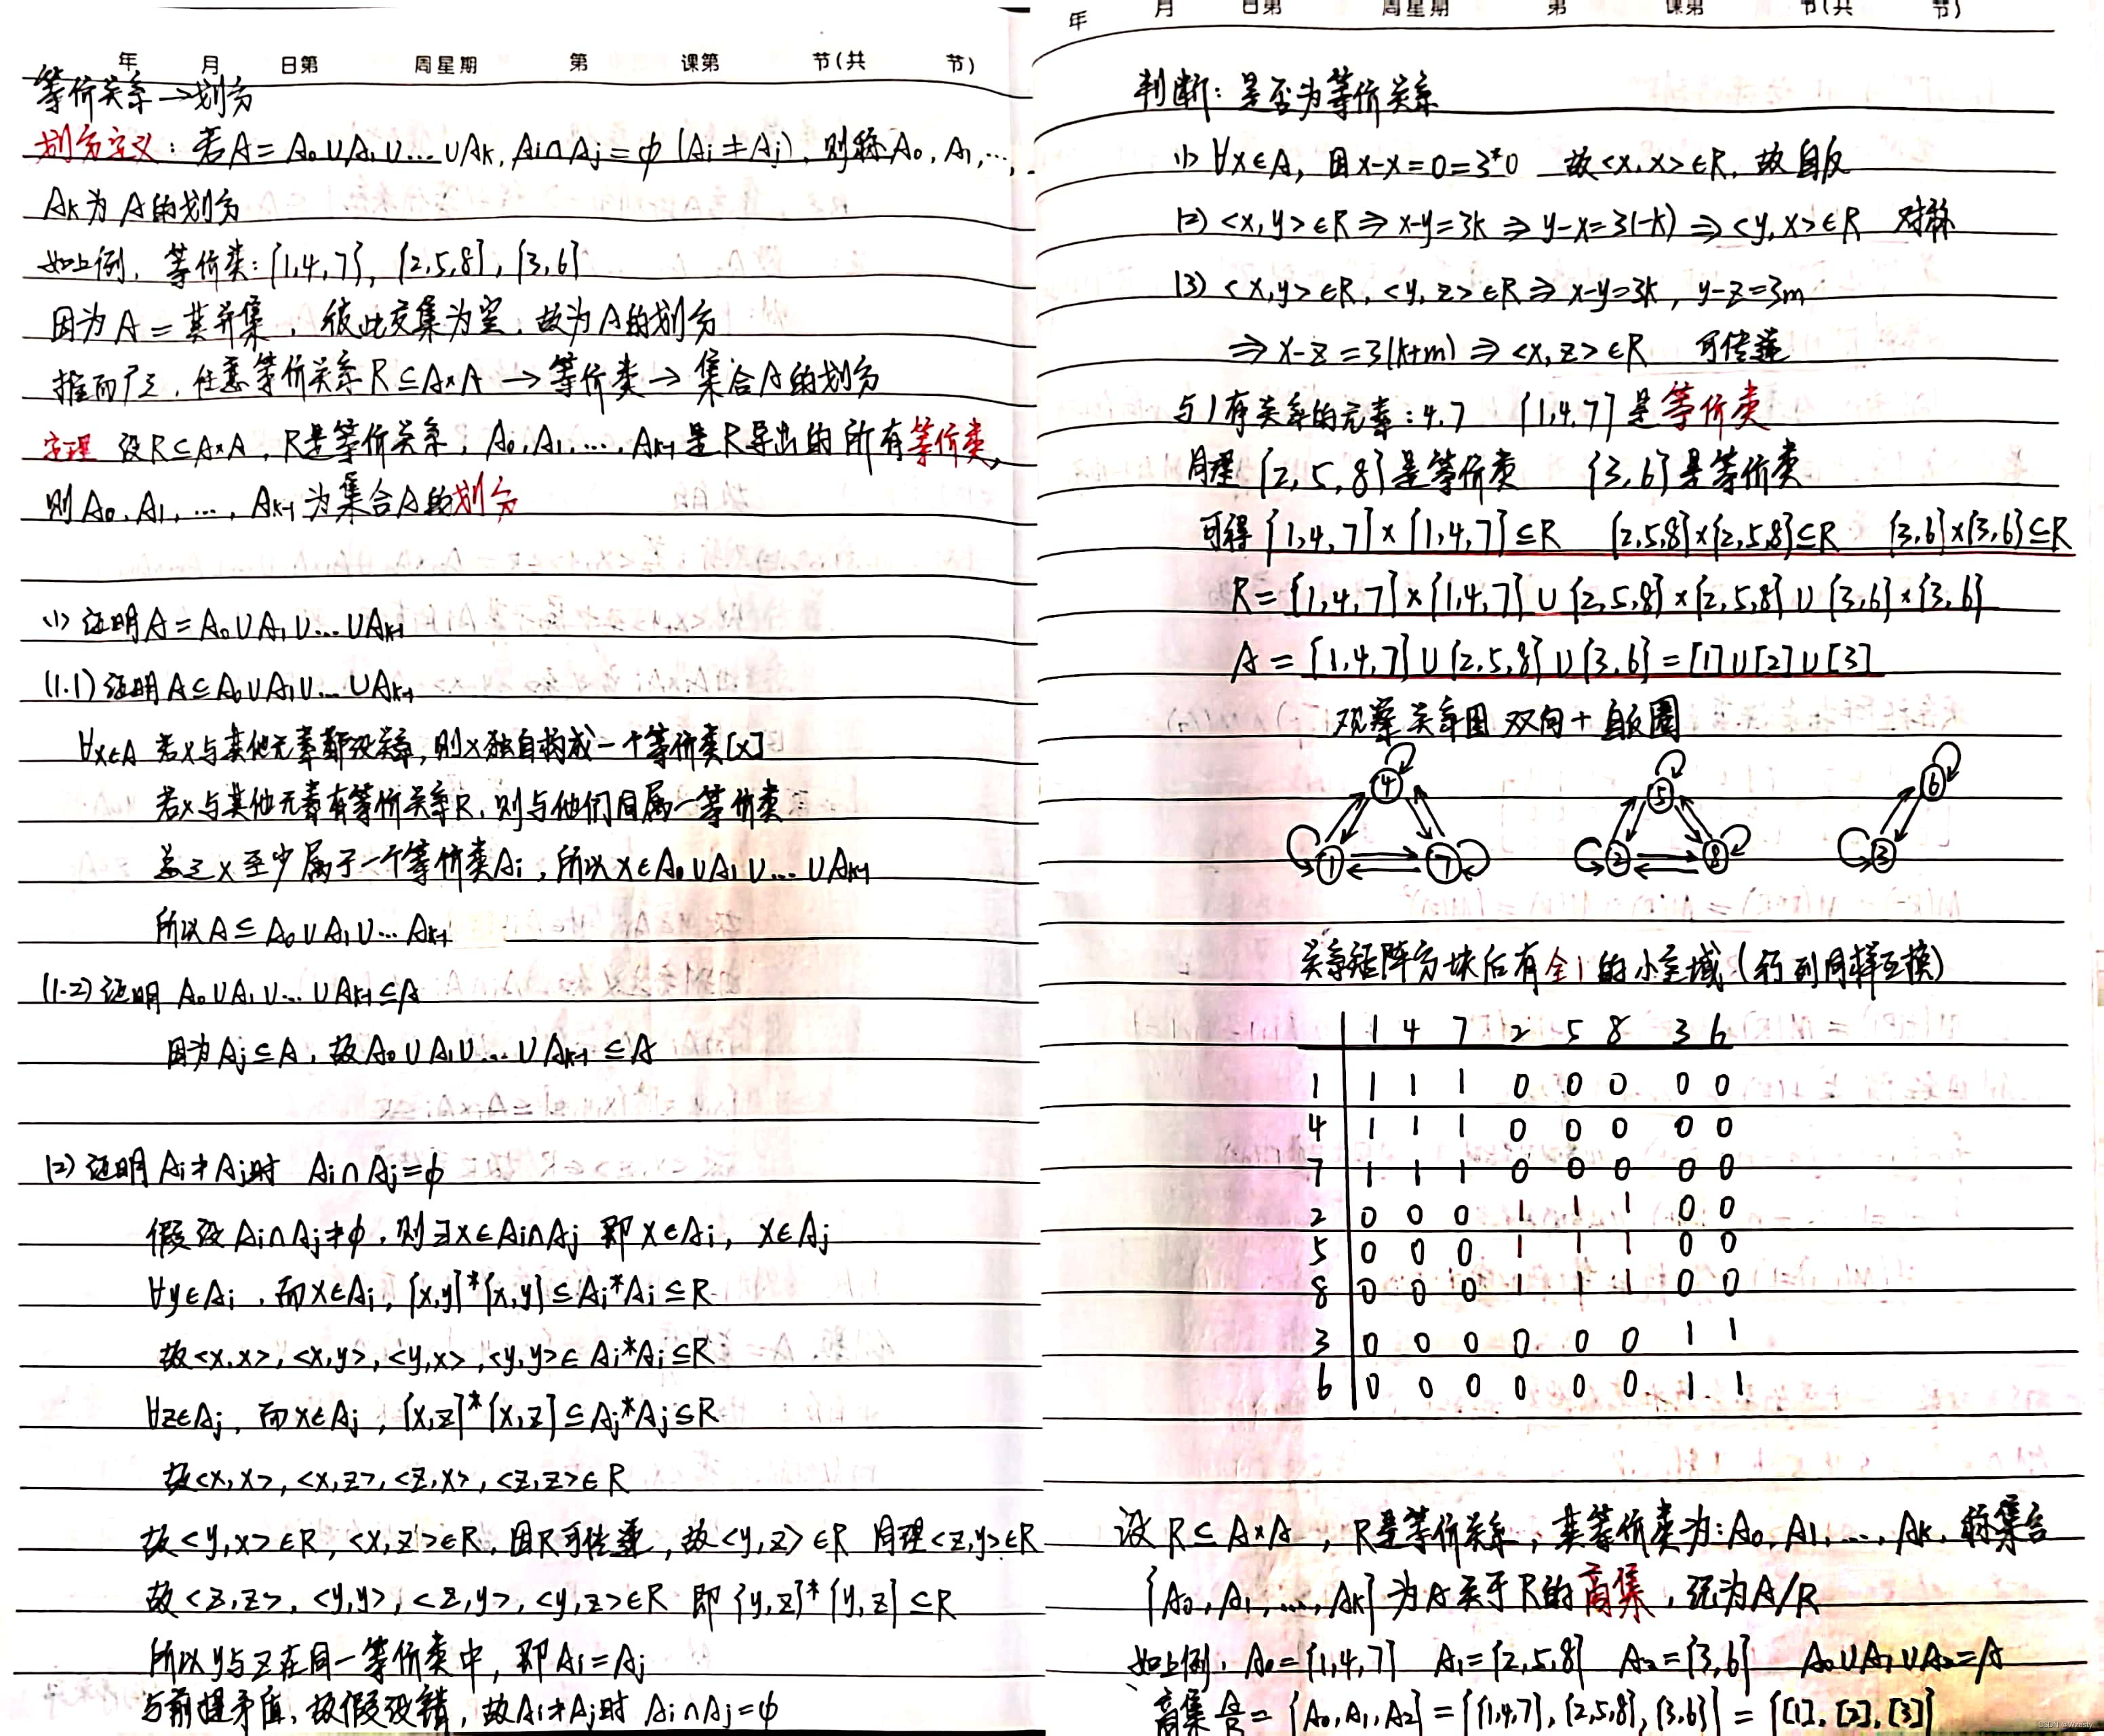 年 月 日第 周星期 第 课第 节(共 节)
等价关系→划分
划分定义:若A=A₀∪A₁∪…∪Aₖ,Ai∩Aj=φ (Ai≠Aj),则称A₀,A₁,…,
Aₖ为A的划分
如上例,等价类:{1,4,7},{2,5,8},{3,6}
因为A=其并集,彼此交集为空,故为A的划分
推而广之,任意等价关系R⊆A×A→等价类→集合A的划分
定理 设R⊆A×A,R是等价关系,A₀,A₁,…,Aₖ₋₁是R导出的所有等价类,
则A₀,A₁,…,Aₖ₋₁为集合A的划分
(1) 证明A=A₀∪A₁∪…∪Aₖ₋₁
(1.1) 证明A⊆A₀∪A₁∪…∪Aₖ₋₁
∀x∈A 若x与其他元素都没关系,则x独自构成一个等价类[x]
若x与其他元素有等价关系R,则与他们同属一等价类
总之x至少属于一个等价类Ai,所以x∈A₀∪A₁∪…∪Aₖ₋₁
所以A⊆A₀∪A₁∪…Aₖ₋₁
(1.2) 证明 A₀∪A₁∪…∪Aₖ₋₁⊆A
因为Aj⊆A,故A₀∪A₁∪…∪Aₖ₋₁⊆A
(2) 证明Ai≠Aj时 Ai∩Aj=φ
假设Ai∩Aj≠φ,则∃x∈Ai∩Aj 即x∈Ai,x∈Aj
∀y∈Ai,而x∈Ai,{x,y}*{x,y}⊆Ai*Ai⊆R
故<x,x>,<x,y>,<y,x>,<y,y>∈Ai*Ai⊆R
∀z∈Aj,而x∈Aj,{x,z}*{x,z}⊆Aj*Aj⊆R
故<x,x>,<x,z>,<z,x>,<z,z>∈R
故<y,x>∈R,<x,z>∈R,因R可传递,故<y,z>∈R 同理<z,y>∈R
故<z,z>,<y,y>,<z,y>,<y,z>∈R 即{y,z}*{y,z}⊆R
所以y与z在同一等价类中,即Ai=Aj
与前提矛盾,故假设错,故Ai≠Aj时 Ai∩Aj=φ
年 月 日第 周星期 第 课第 节(共 节)
判断:是否为等价关系
(1) ∀x∈A,因x-x=0=3*0 故<x,x>∈R,故自反
(2) <x,y>∈R⇒x-y=3k⇒y-x=3(-k)⇒<y,x>∈R 对称
(3) <x,y>∈R,<y,z>∈R⇒x-y=3k,y-z=3m
⇒x-z=3(k+m)⇒<x,z>∈R 可传递
与1有关系的元素:4,7 {1,4,7}是等价类
同理{2,5,8}是等价类 {3,6}是等价类
可得{1,4,7}×{1,4,7}⊆R {2,5,8}×{2,5,8}⊆R {3,6}×{3,6}⊆R
R={1,4,7}×{1,4,7}∪{2,5,8}×{2,5,8}∪{3,6}×{3,6}
A={1,4,7}∪{2,5,8}∪{3,6}=[1]∪[2]∪[3]
观察关系图 双向+自反圈
4 5 6
1 7 2 8 3
关系矩阵分块后有全1的小区域(行列同样互换)
1 4 7 2 5 8 3 6
1 1 1 1 0 0 0 0 0
4 1 1 1 0 0 0 0 0
7 1 1 1 0 0 0 0 0
2 0 0 0 1 1 1 0 0
5 0 0 0 1 1 1 0 0
8 0 0 0 1 1 1 0 0
3 0 0 0 0 0 0 1 1
6 0 0 0 0 0 0 1 1
设R⊆A×A,R是等价关系,其等价类为:A₀,A₁,…,Aₖ,称集合
{A₀,A₁,…,Aₖ}为A关于R的商集,记为A/R
如上例,A₀={1,4,7} A₁={2,5,8} A₂={3,6} A₀∪A₁∪A₂=A
商集A/R={A₀,A₁,A₂}={{1,4,7},{2,5,8},{3,6}}={[1],[2],[3]}